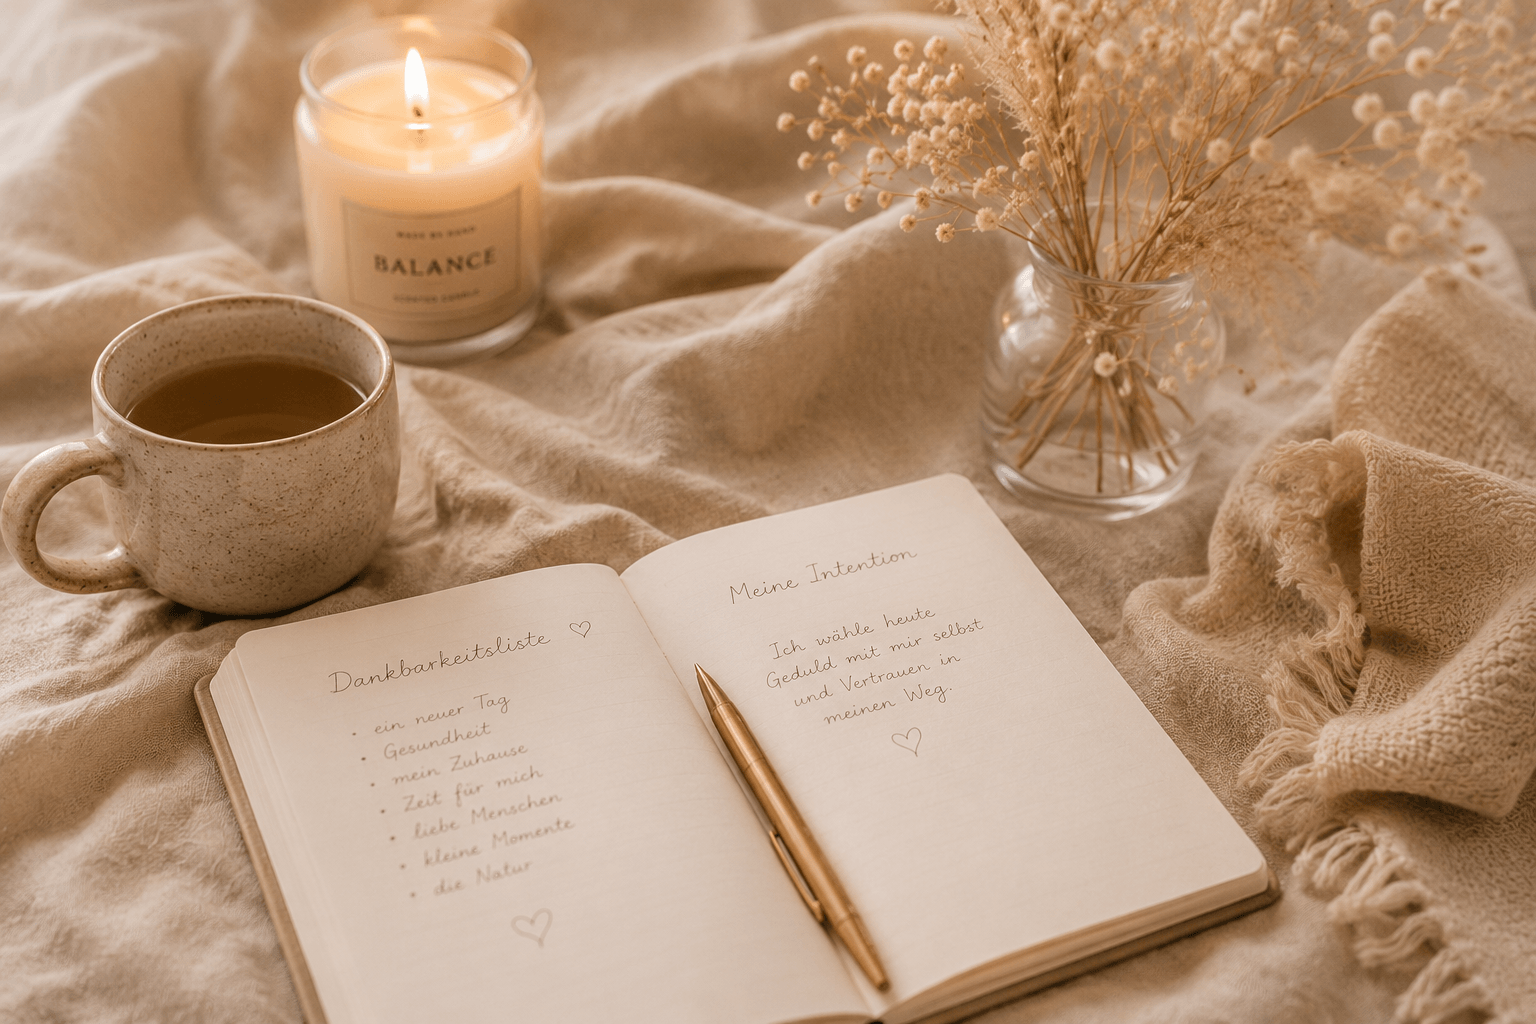 BALANCE
SCENTED CANDLE
Dankbarkeitsliste ♡
• ein neuer Tag
• Gesundheit
• mein Zuhause
• Zeit für mich
• liebe Menschen
• kleine Momente
• die Natur
♡
Meine Intention
Ich wähle heute
Geduld mit mir selbst
und Vertrauen in
meinen Weg.
♡